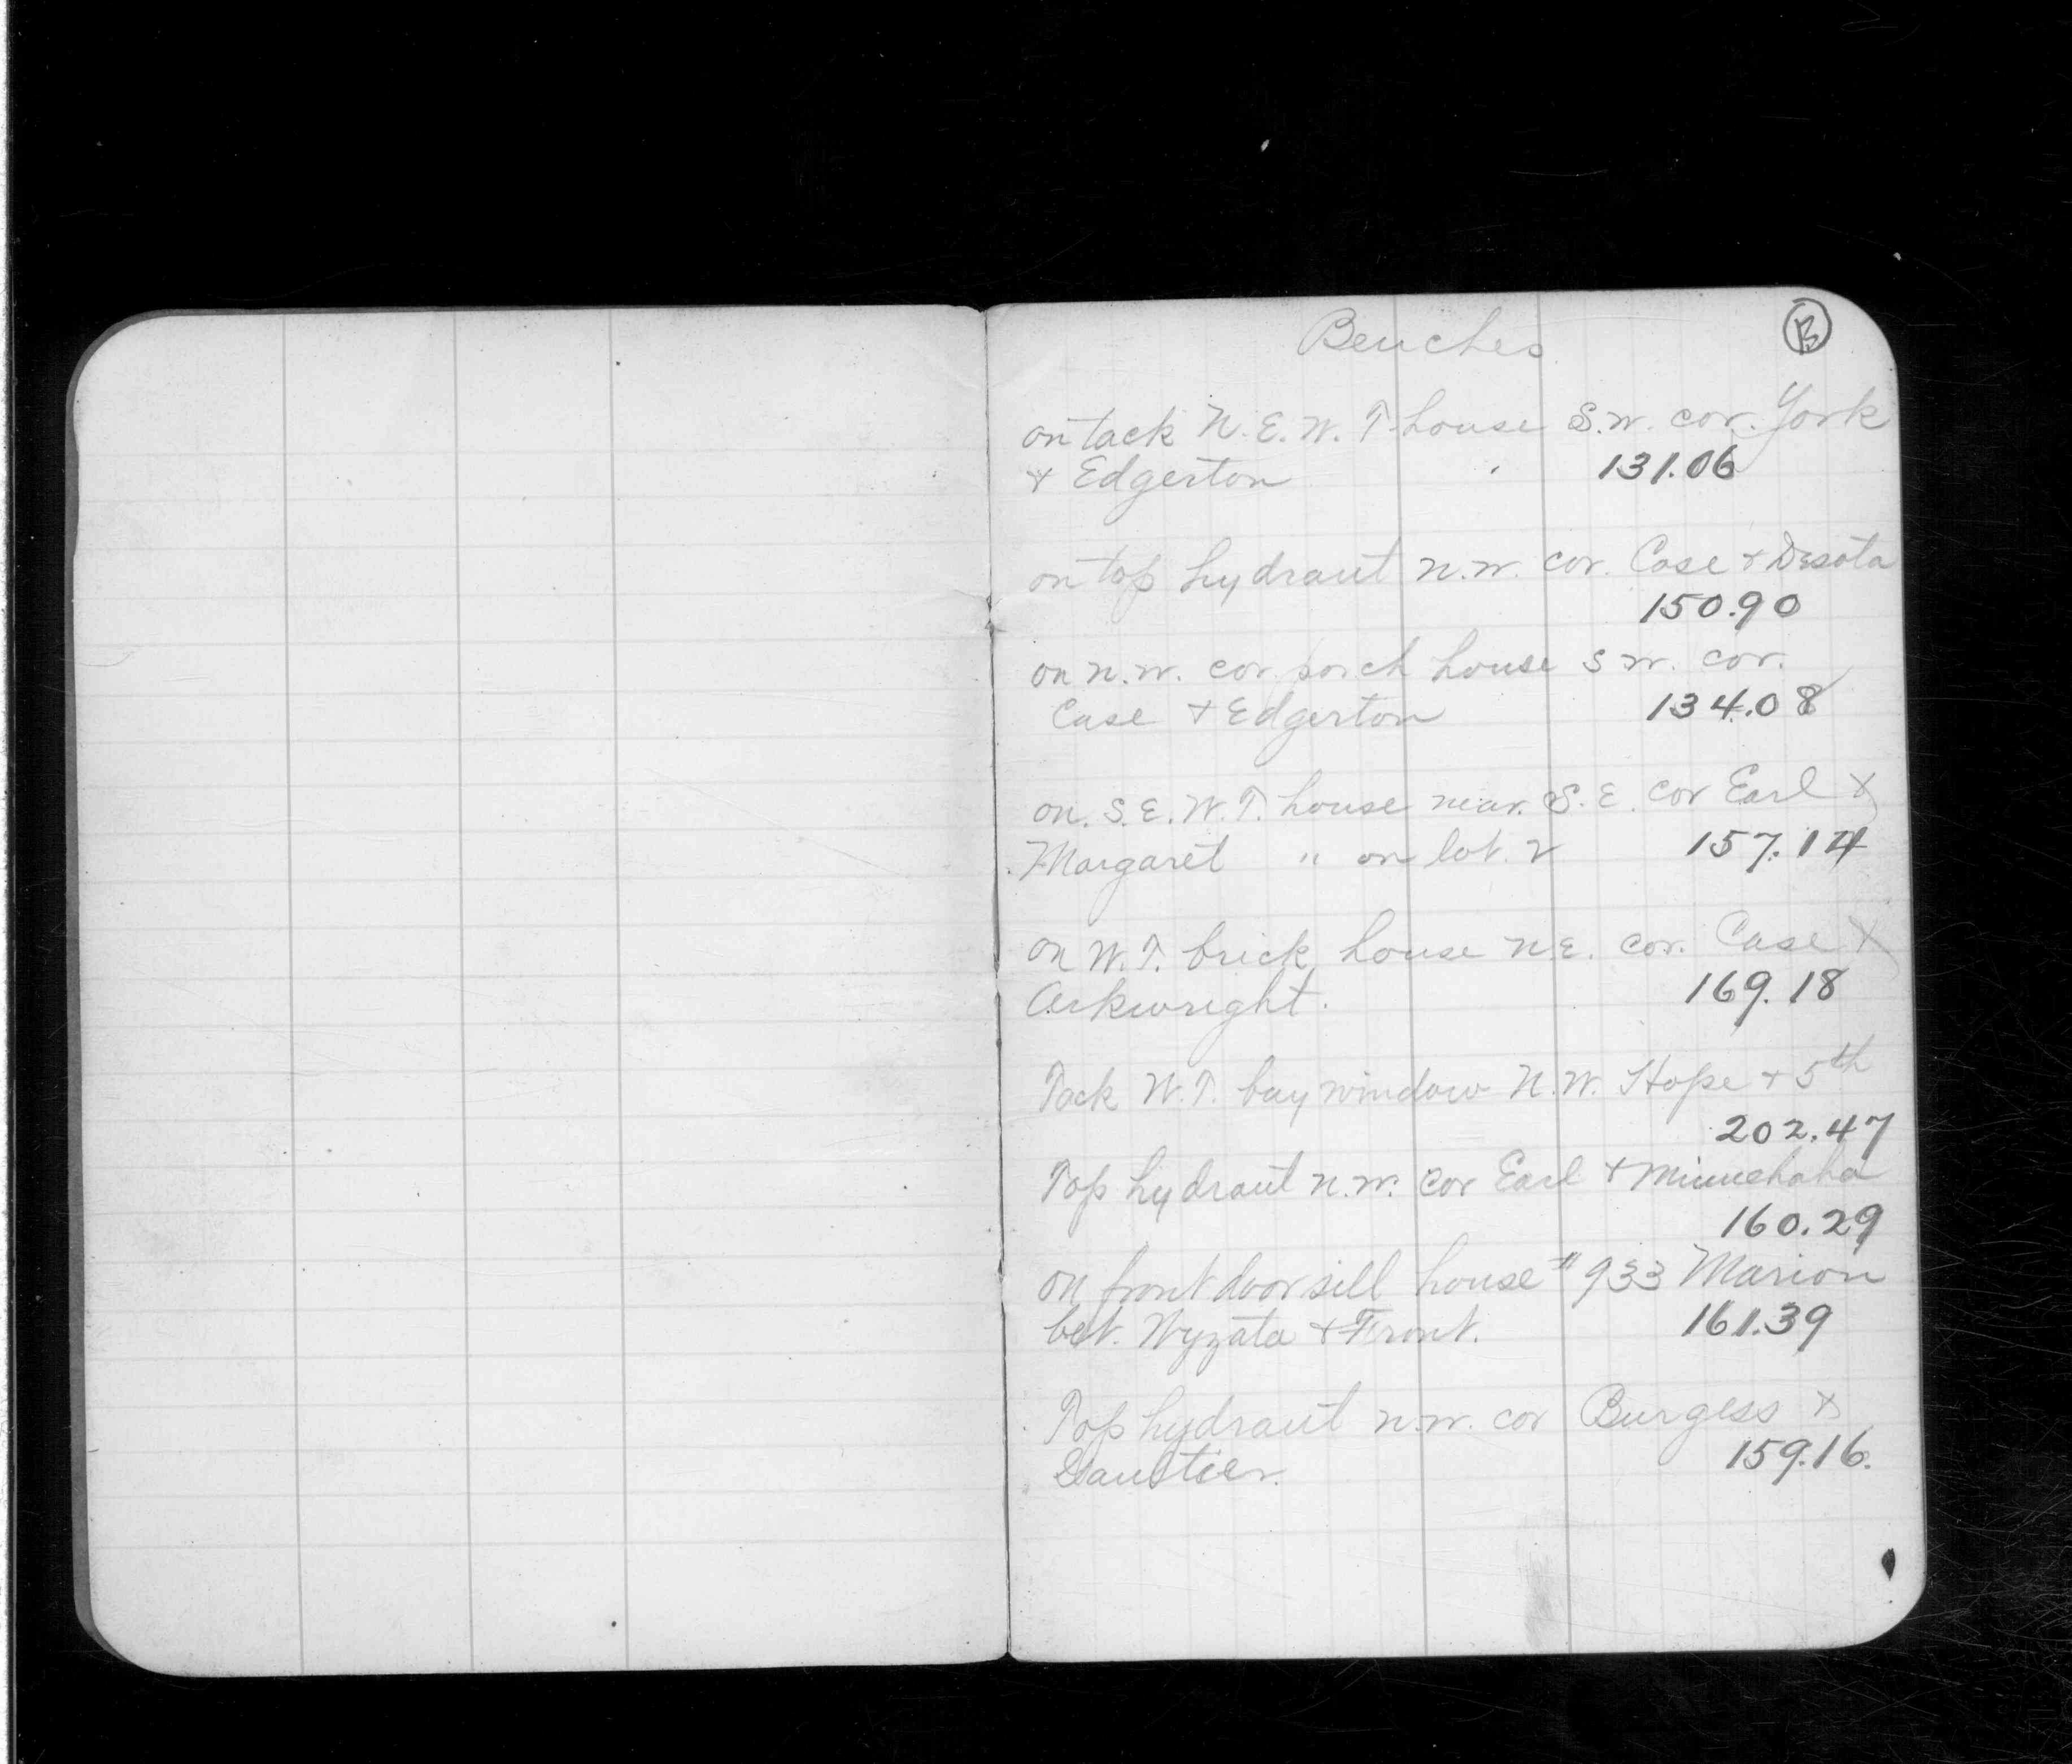 Benches
B
on tack N.E. W. T. house S.W. cor. York
& Edgerton 131.06
on top hydrant N.W. cor. Case & Desota
150.90
on N.W. cor. porch house S W. cor.
Case & Edgerton 134.08
on S.E. W.T. house near S.E. cor Earl &
Margaret " on lot. 2 157.14
on W.T. brick house N.E. cor. Case &
Arkwright. 169.18
Tack W.T. bay window N.W. Hope & 5th
202.47
Top hydrant N.W. cor Earl & Minnehaha
160.29
on front door sill house #933 Marion
bet. Wyzata & Front. 161.39
Top hydrant N.W. cor Burgess &
Gaultier. 159.16.